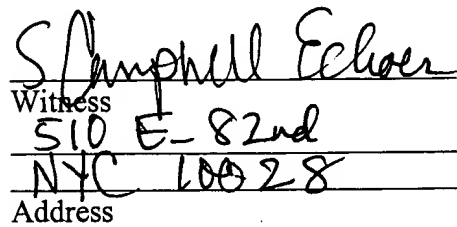 S Campbell Echols
Witness
510 E- 82nd
NYC 10028
Address